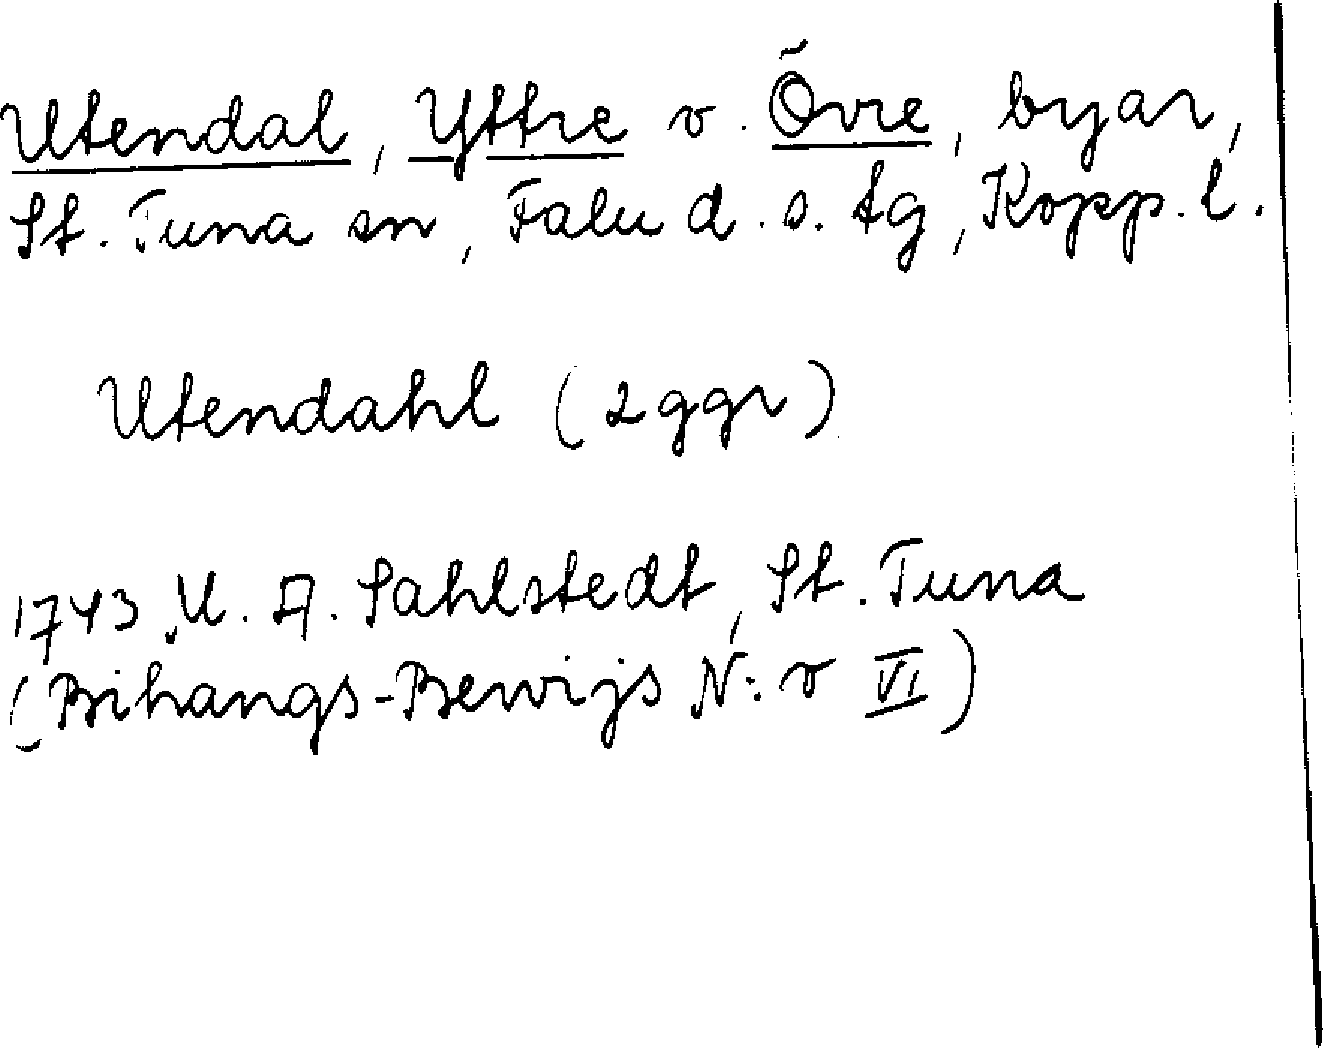 Utendal, Yttre o. Övre, byar,
St. Tuna sn, Falu d. s. tg, Kopp. l.
Utendahl (2 ggr)
1743 U. A. Sahlstedt, St. Tuna
(Bihangs-Bewijs N:o VI)